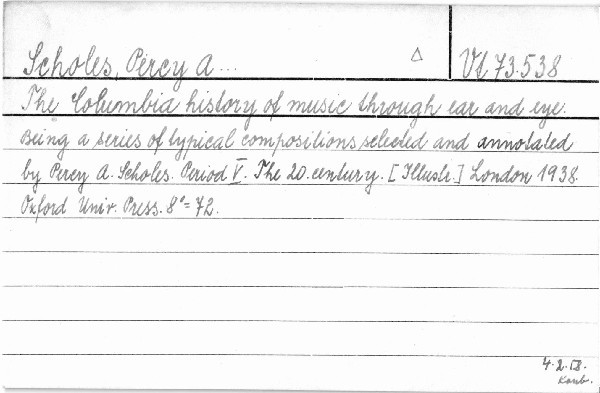 Scholes, Percy A... Δ Vt 73.538
The Columbia history of music through ear and eye.
Being a series of typical compositions selected and annotated
by Percy A. Scholes. Period V. The 20. century. [Illustr.] London 1938.
Oxford Univ. Press. 8°= 72.
4.2.58.